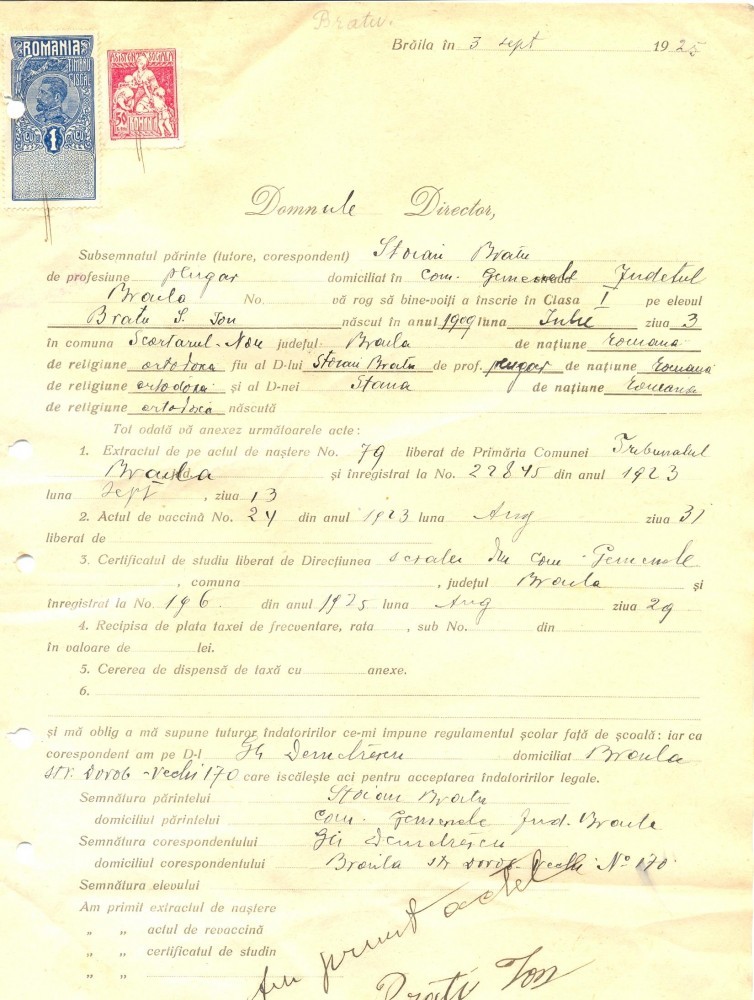 Bratu.
Brăila în 3 sept 1925
ROMANIA
TIMBRU FISCAL
1
ASISTENȚA SOCIALA
50 BANI
ROMANIA
Domnule Director,
Subsemnatul părinte (tutore, corespondent) Stoian Bratu
de profesiune plugar domiciliat în com. Gemenele Judetul
Braila No. vă rog să bine-voiți a înscrie în Clasa I pe elevul
Bratu S. Ion născut în anul 1909 luna Iulie ziua 3
în comuna Scortarul-Nou județul Braila de națiune romana
de religiune ortodoxa fiu al D-lui Stoian Bratu de prof. plugar de națiune romana
de religiune ortodoxa și al D-nei Stana de națiune romana
de religiune ortodoxa născută
Tot odată vă anexez următoarele acte :
1. Extractul de pe actul de naștere No. 79 liberat de Primăria Comunei Tribunalul
Braila și înregistrat la No. 22845 din anul 1923
luna sept , ziua 13
2. Actul de vaccină No. 24 din anul 1923 luna Aug ziua 31
liberat de
3. Certificatul de studiu liberat de Direcțiunea scoalei din com. Gemenele
, comuna , județul Braila și
înregistrat la No. 196 din anul 1925 luna Aug ziua 29
4. Recipisa de plata taxei de frecventare, rata , sub No. din
în valoare de lei.
5. Cererea de dispensă de taxă cu anexe.
6.
și mă oblig a mă supune tuturor îndatoririlor ce-mi impune regulamentul școlar față de școală : iar ca
corespondent am pe D-l Gh Demetrescu domiciliat Braila
str. Dorob-Vechi 170 care iscălește aci pentru acceptarea îndatoririlor legale.
Semnătura părintelui Stoian Bratu
domiciliul părintelui com. Gemenele Jud. Braila
Semnătura corespondentului Gh Demetrescu
domiciliul corespondentului Braila str Dorob Vechi No 170
Semnătura elevului
Am primit extractul de naștere
„ „ actul de revaccină
„ „ certificatul de studin
„ „
Am primit actele
Bratu Ion